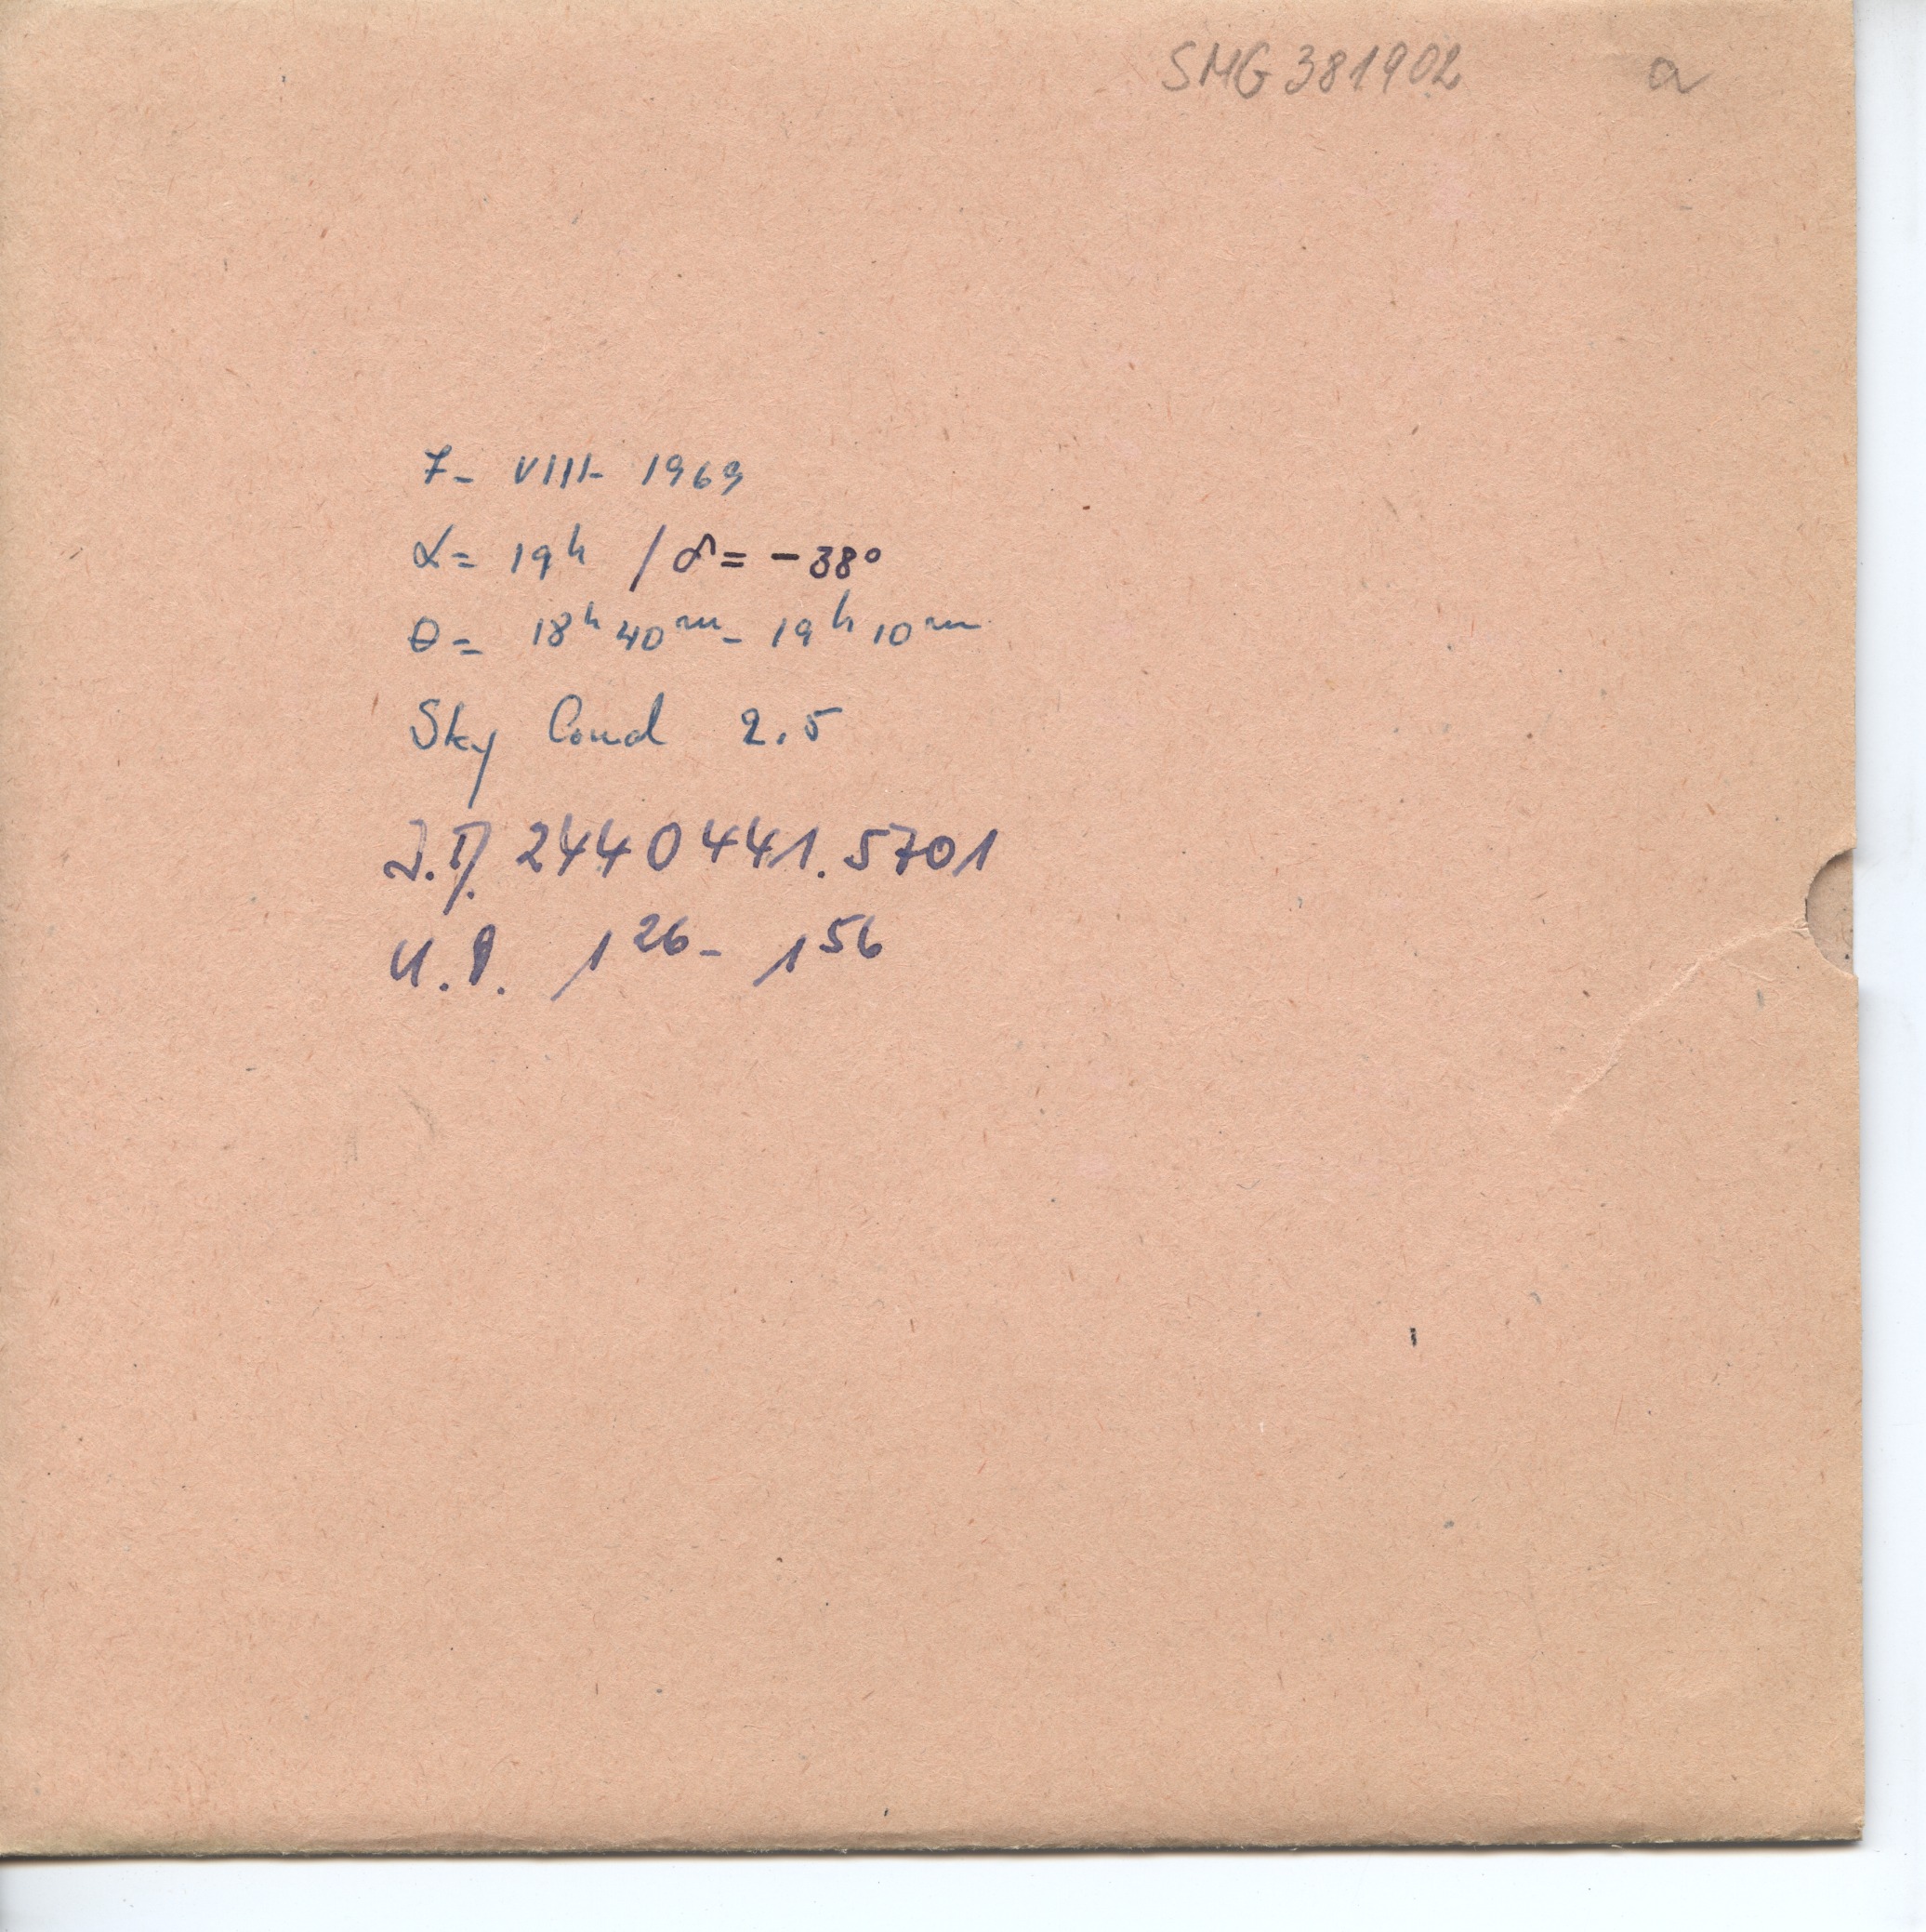 SMG 381902 a
7- VIII- 1969
α= 19ʰ / δ= -38°
θ= 18ʰ 40ᵐ- 19ʰ 10ᵐ
Sky Cond 2.5
J.D. 2440441.5701
U.T. 1²⁶- 1⁵⁶